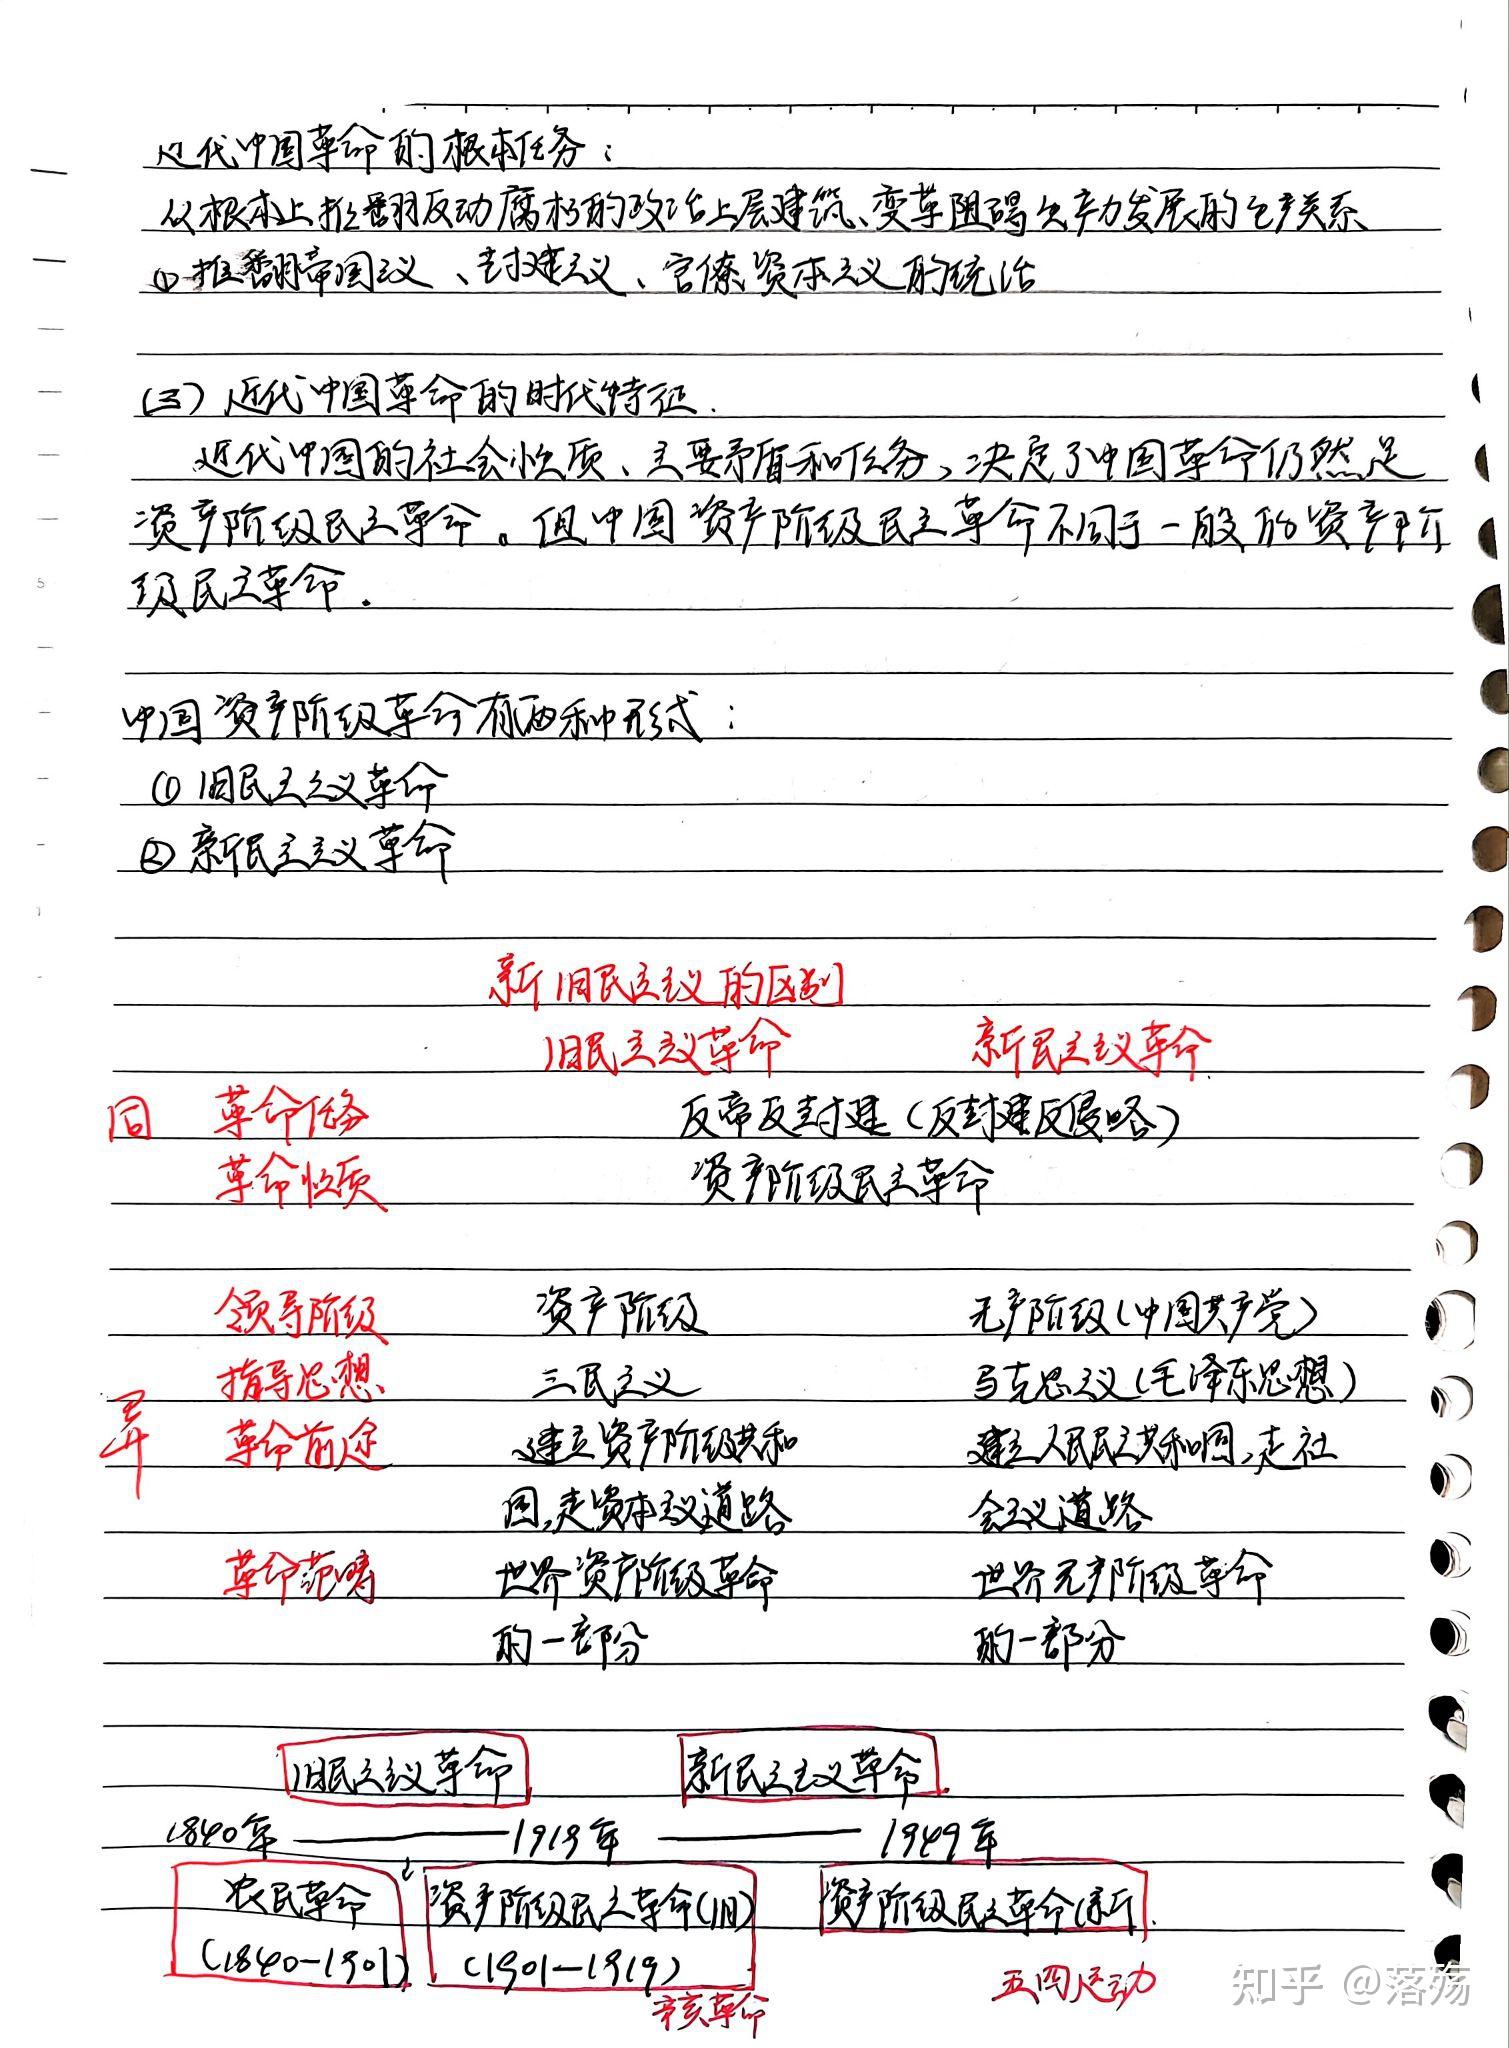 近代中国革命的根本任务:
从根本上推翻反动腐朽的政治上层建筑、变革阻碍生产力发展的生产关系
① 推翻帝国主义、封建主义、官僚资本主义的统治
(三)近代中国革命的时代特征.
近代中国的社会性质、主要矛盾和任务,决定了中国革命仍然是
资产阶级民主革命。但中国资产阶级民主革命不同于一般的资产阶
级民主革命.
中国资产阶级革命有两种形式:
① 旧民主主义革命
② 新民主主义革命
新旧民主主义的区别
旧民主主义革命 新民主主义革命
同 革命任务 反帝反封建(反封建反侵略)
革命性质 资产阶级民主革命
领导阶级 资产阶级 无产阶级(中国共产党)
指导思想 三民主义 马克思主义(毛泽东思想)
异 革命前途 建立资产阶级共和 建立人民民主共和国,走社
国,走资本主义道路 会主义道路
革命范畴 世界资产阶级革命 世界无产阶级革命
的一部分 的一部分
旧民主主义革命 新民主主义革命
1840年 1919年 1949年
农民革命 资产阶级民主革命(旧) 资产阶级民主革命(新
(1840-1901) (1901-1919)
辛亥革命 五四运动
知乎 @落殇